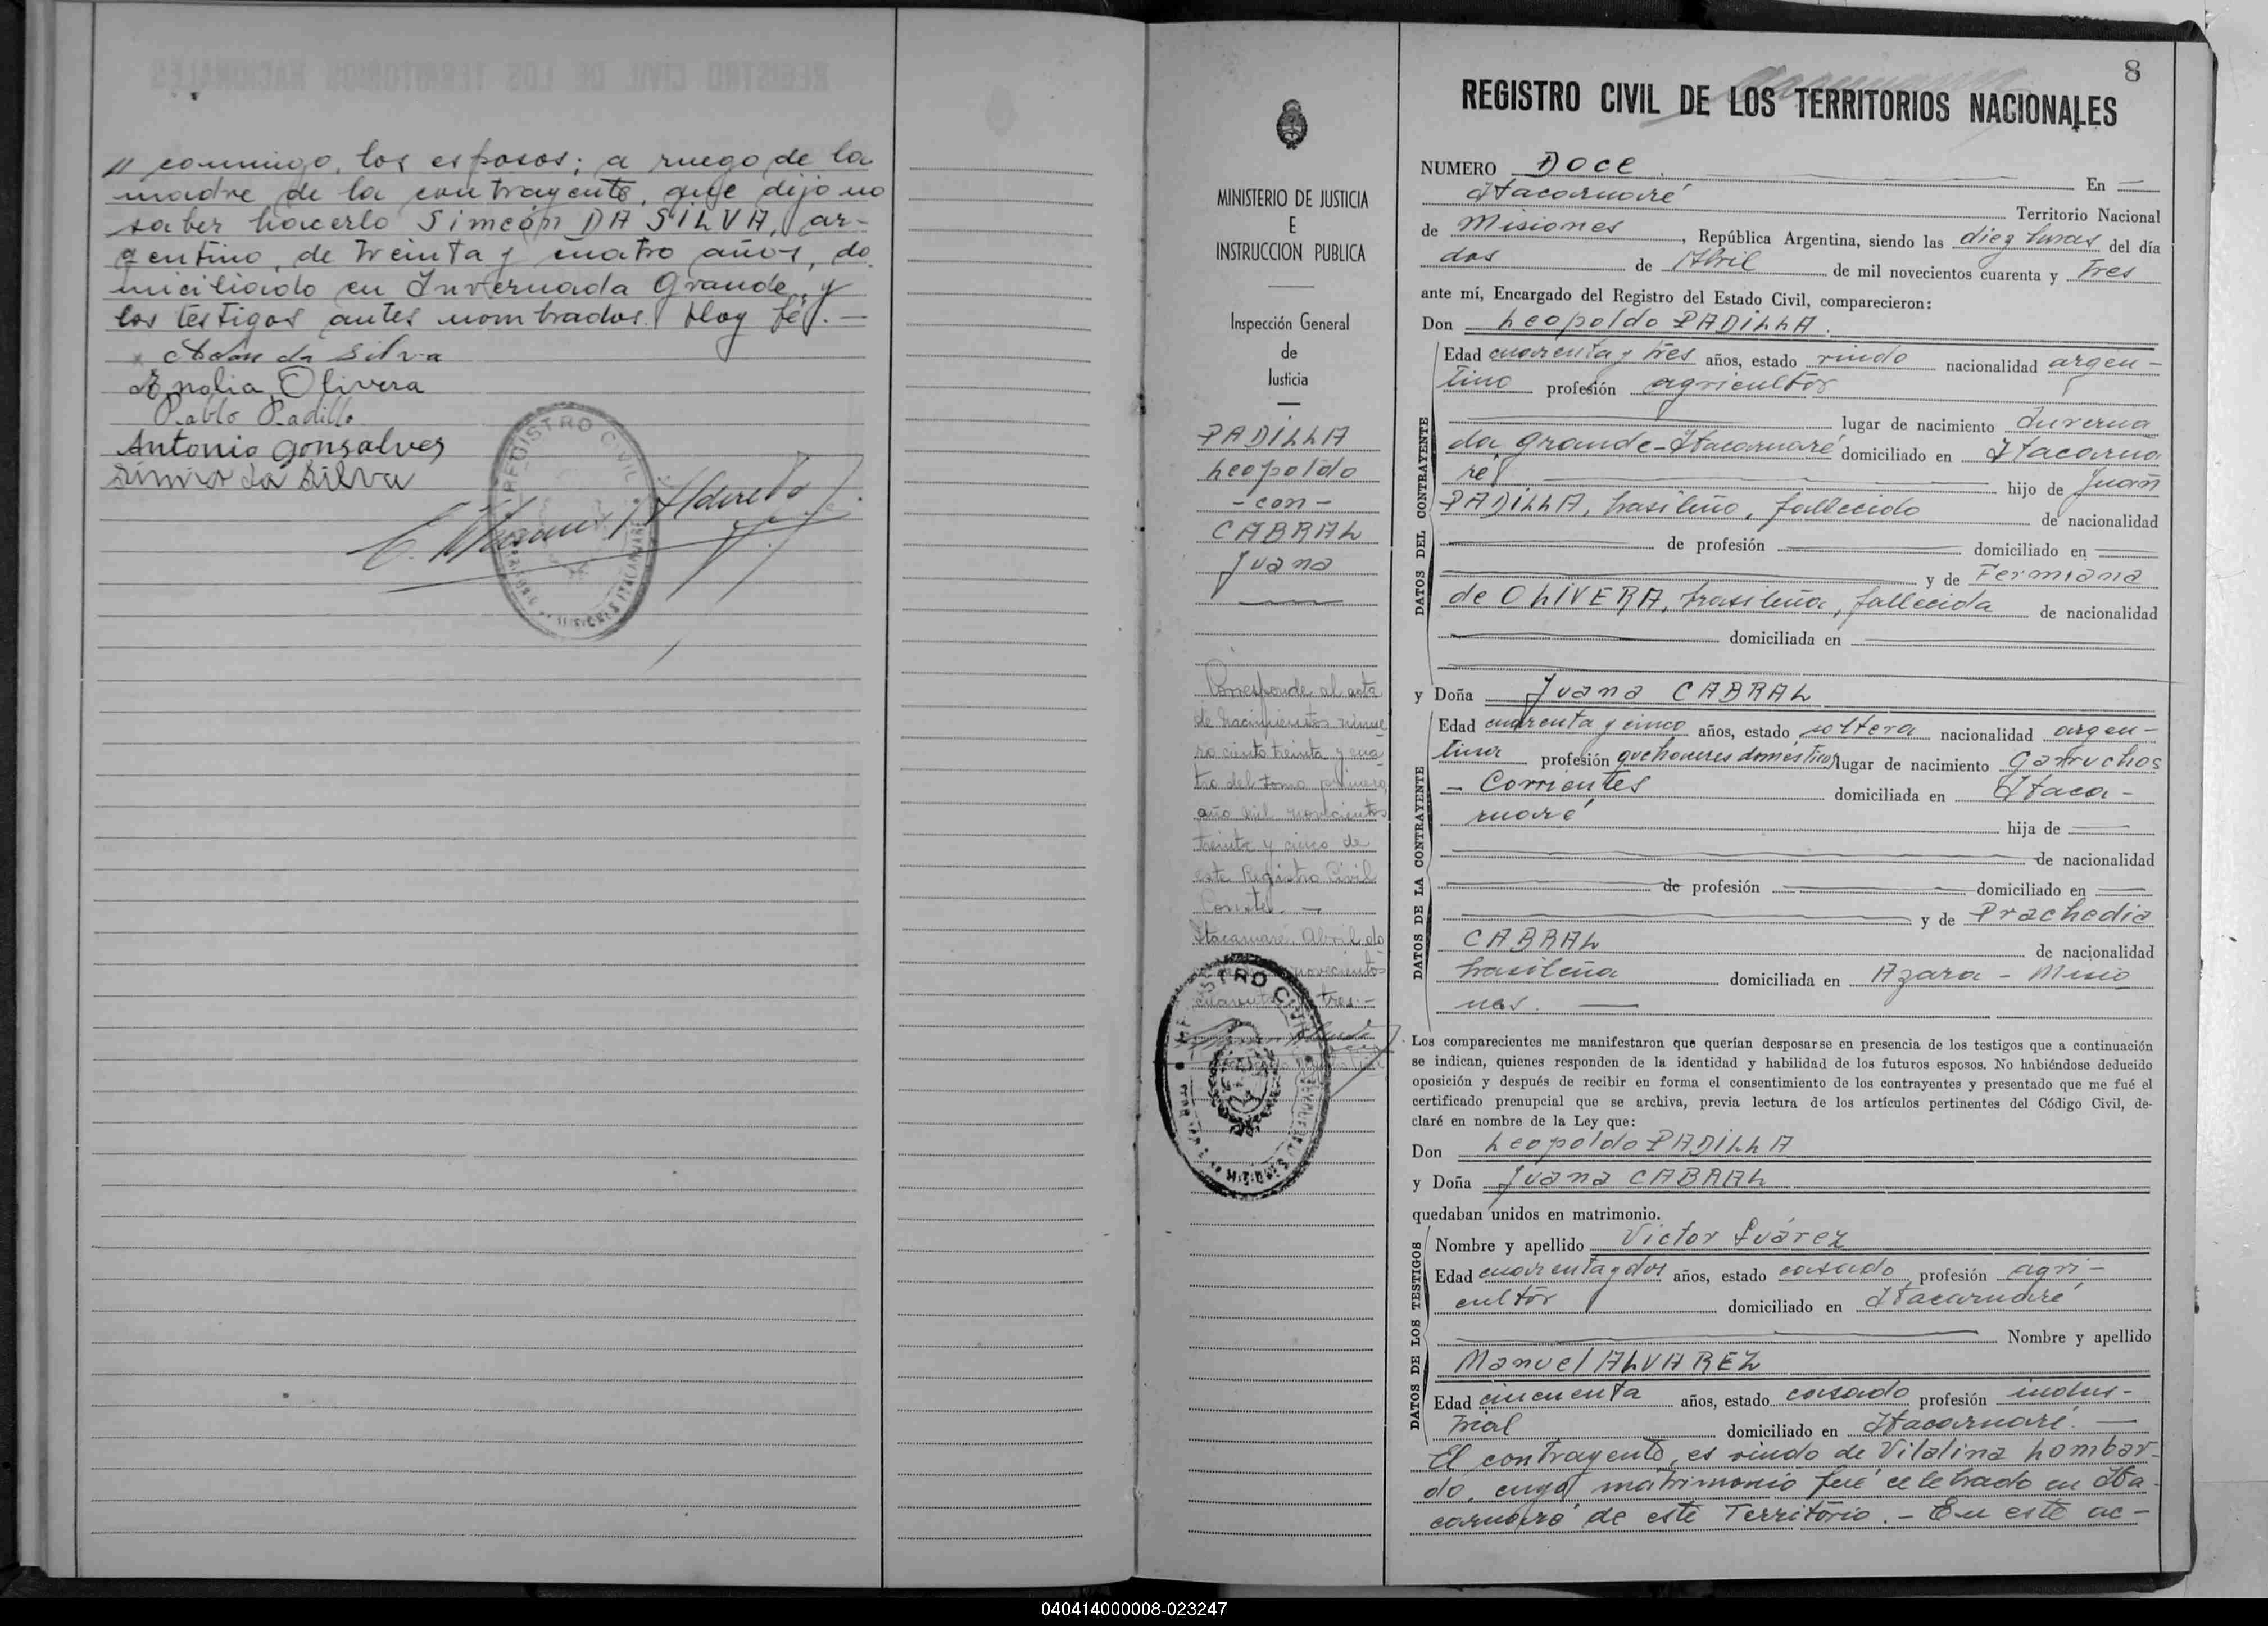 // conmigo, los esposos; a ruego de la
madre de la contrayente, que dijo no
saber hacerlo Simeón DA SILVA, ar-
gentino, de treinta y cuatro años, do
miciliado en Invernada Grande, y
los testigos antes nombrados. Doy fé. —
x Adan da Silva
Enalia Olivera
Pablo Padilla
Antonio Gonsalves
da Silva
REGISTRO CIVIL
8
REGISTRO CIVIL DE LOS TERRITORIOS NACIONALES
MINISTERIO DE JUSTICIA
E
INSTRUCCION PUBLICA
Inspección General
de
Justicia
PADILLA
Leopoldo
- con -
CABRAL
Juana
Corresponde al acta
de nacimientos núme
ro ciento treinta y cua
tro del tomo primero,
año mil novecientos
treinta y cinco de
este Registro Civil
Conste. —
Itacaruaré, Abril do
novecientos
cuarenta tres.-
NUMERO DOCE En —
Itacaruaré Territorio Nacional
de Misiones, República Argentina, siendo las diez horas del día
dos de Abril de mil novecientos cuarenta y tres
ante mí, Encargado del Registro del Estado Civil, comparecieron:
Don Leopoldo PADILLA.
DATOS DEL CONTRAYENTE
Edad cuarenta y tres años, estado viudo nacionalidad argen-
tino profesión agricultor
lugar de nacimiento Inverna
da Grande-Itacaruaré domiciliado en Itacarua
ré hijo de Juan
PADILLA, brasileño, fallecido de nacionalidad
de profesión domiciliado en
y de Fermiana
de OLIVERA, brasileña, fallecida de nacionalidad
domiciliada en
y Doña Juana CABRAL
DATOS DE LA CONTRAYENTE
Edad cuarenta y cinco años, estado soltera nacionalidad argen-
tina profesión quehaceres domésticos lugar de nacimiento Garruchos
- Corrientes domiciliada en Itaca-
ruaré hija de
de nacionalidad
de profesión domiciliado en
y de Prachedia
CABRAL de nacionalidad
brasileña domiciliada en Azara - Misio
nes. —
Los comparecientes me manifestaron que querían desposarse en presencia de los testigos que a continuación
se indican, quienes responden de la identidad y habilidad de los futuros esposos. No habiéndose deducido
oposición y después de recibir en forma el consentimiento de los contrayentes y presentado que me fué el
certificado prenupcial que se archiva, previa lectura de los artículos pertinentes del Código Civil, de-
claré en nombre de la Ley que:
Don Leopoldo PADILLA
y Doña Juana CABRAL
quedaban unidos en matrimonio.
DATOS DE LOS TESTIGOS
Nombre y apellido Victor Suárez
Edad cuarenta y dos años, estado casado, profesión agri-
cultor domiciliado en Itacaruaré
Nombre y apellido
Manuel ALVAREZ
Edad cincuenta años, estado casado profesión indus-
trial domiciliado en Itacaruaré. —
El contrayente, es viudo de Vitalina Lombar-
do, cuyo matrimonio fué celebrado en Ita-
caruaré de este Territorio. - En este ac-
040414000008-023247